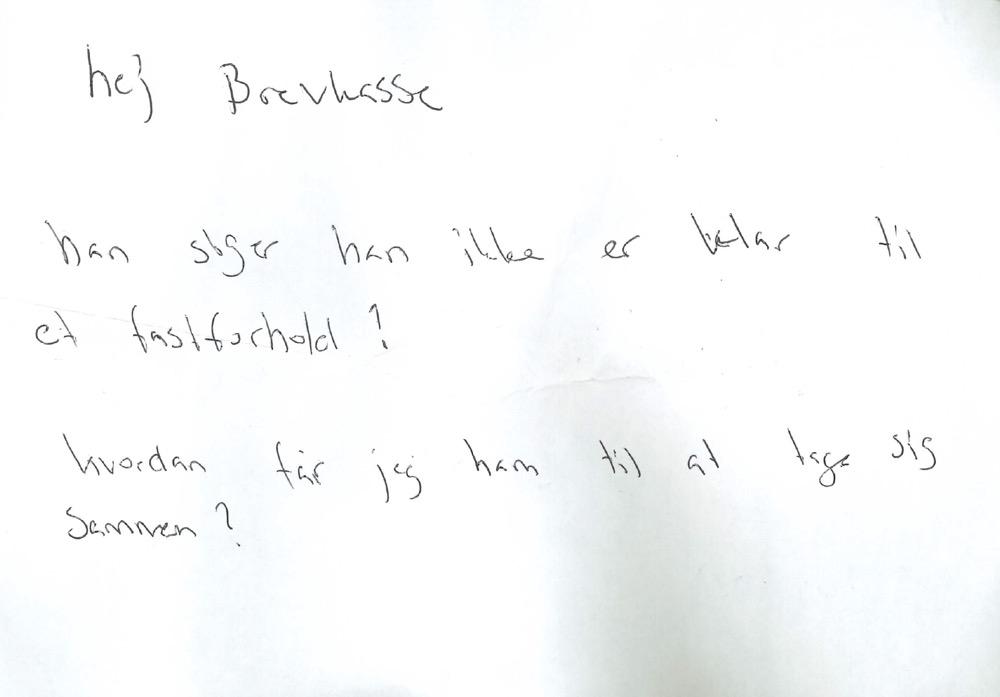 hej Brevkasse
han siger han ikke er klar til
et fastforhold?
hvordan får jeg ham til at tage sig
sammen?